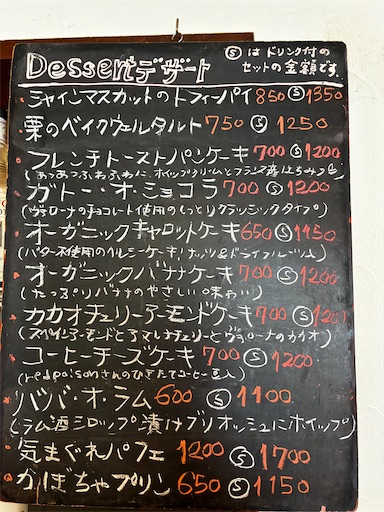 Dessertデザート
Ⓢはドリンク付の
セットの金額です。
シャインマスカットのトフィーパイ 850 Ⓢ 1350
栗のベイクヴェルタルト 750 Ⓢ 1250
フレンチトーストパンケーキ 700 Ⓢ 1200
(あつあつふわふわに、ホイップクリームとフランス産はちみつ
ガトー・オ・ショコラ 700 Ⓢ 1200
(ヴァローナのチョコレート使用のしっとりクラッシックタイプ)
オーガニックキャロットケーキ 650 Ⓢ 1150
(バター不使用のヘルシーケーキ!ナッツ&ドライフルーツ入)
オーガニックバナナケーキ 700 Ⓢ 1200
(たっぷりバナナのやさしい味わい)
カカオチェリーアーモンドケーキ 700 Ⓢ 1200
(スペインアーモンドとアマレナチェリーとヴァローナのカカオ)
コーヒーチーズケーキ 700 Ⓢ 1200
(redpoisonさんのひきたてコーヒー豆入)
ババ・オ・ラム 600 Ⓢ 1100
(ラム酒シロップ漬けブリオッシュにホイップ)
気まぐれパフェ 1200 Ⓢ 1700
かぼちゃプリン 650 Ⓢ 1150